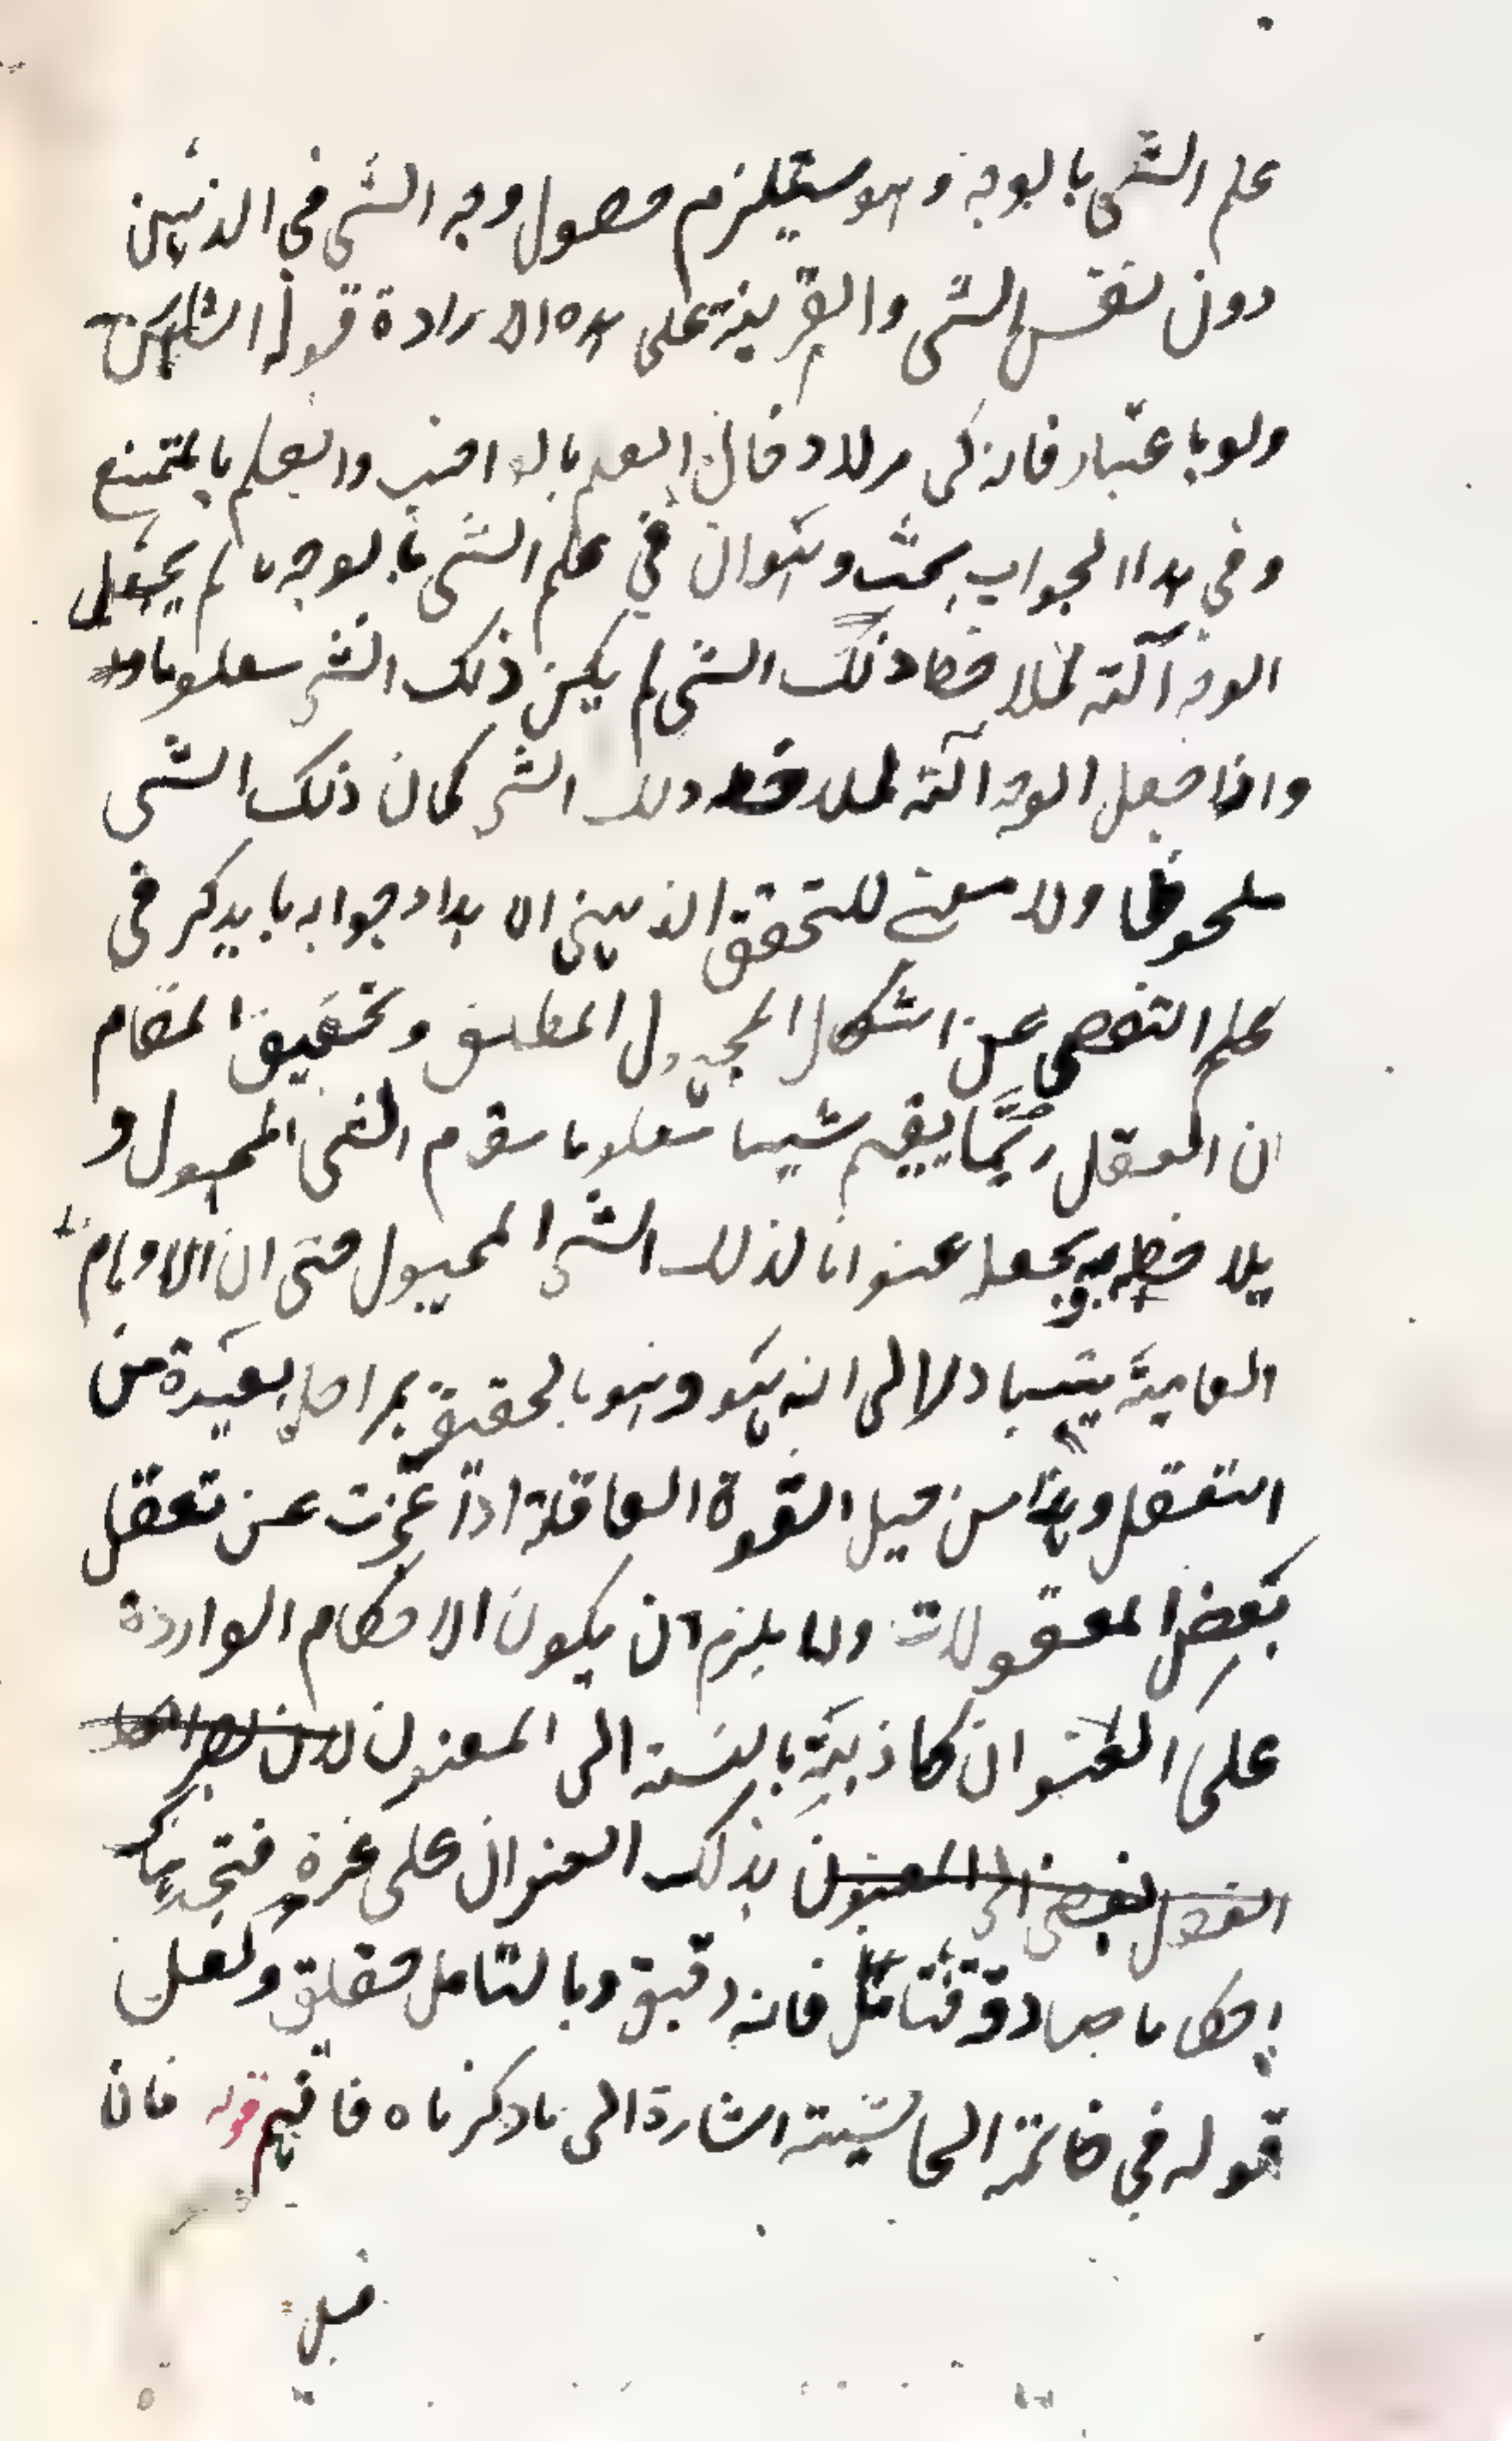 علم الشى بالوجه وهو يستلزم حصول وجه الشى فى الذهن
دون نفس الشى والقرينة على هذه الارادة قوله الشارح
ولو باعتبار فانه كى مرلاد فان العلم بالواجب والعلم بالممتنع
وفي هذا الجواب بحث وهو ان في علم الشى بالوجه ما لم يجعل
الوجه آلته لملاحظة ذلك الشى لم يكن ذلك الشى معلوما
واذا جعل الوجه آلته لملاحظه ذلك الشى كان ذلك الشى
ملحوظا ولا معنى للتحقق الذهنى الا هذا وجوابه ما يذكر فى
علم التفصى عن اشكال المجهول المطلق وتحقيق المقام
ان العقل ربما يقيم شيئا معلوما مقام الشى المجهول و
يلاحظه ويجعله عنوانا لذلك الشى المجهول حتى ان الاوهام
العامية يتبادر الى انه هو وهو بالحقيقة بمراحل بعيدة من
التعقل وهذا من حيل القوة العاقلة اذا عجزت عن تعقل
بعض المعقولات ولا يلزم ان يكون الاحكام الواردة
على العنوان كاذبة بالنسبة الى المعنون
بذلك العنوان على غرة فتجد هناك
احكاما صادقة فتأمل فانه دقيق وبالتامل حقيق ولعل
قوله في خاتمة الحاشية اشارة الى ما ذكرناه فافهم قوله فان
قيل